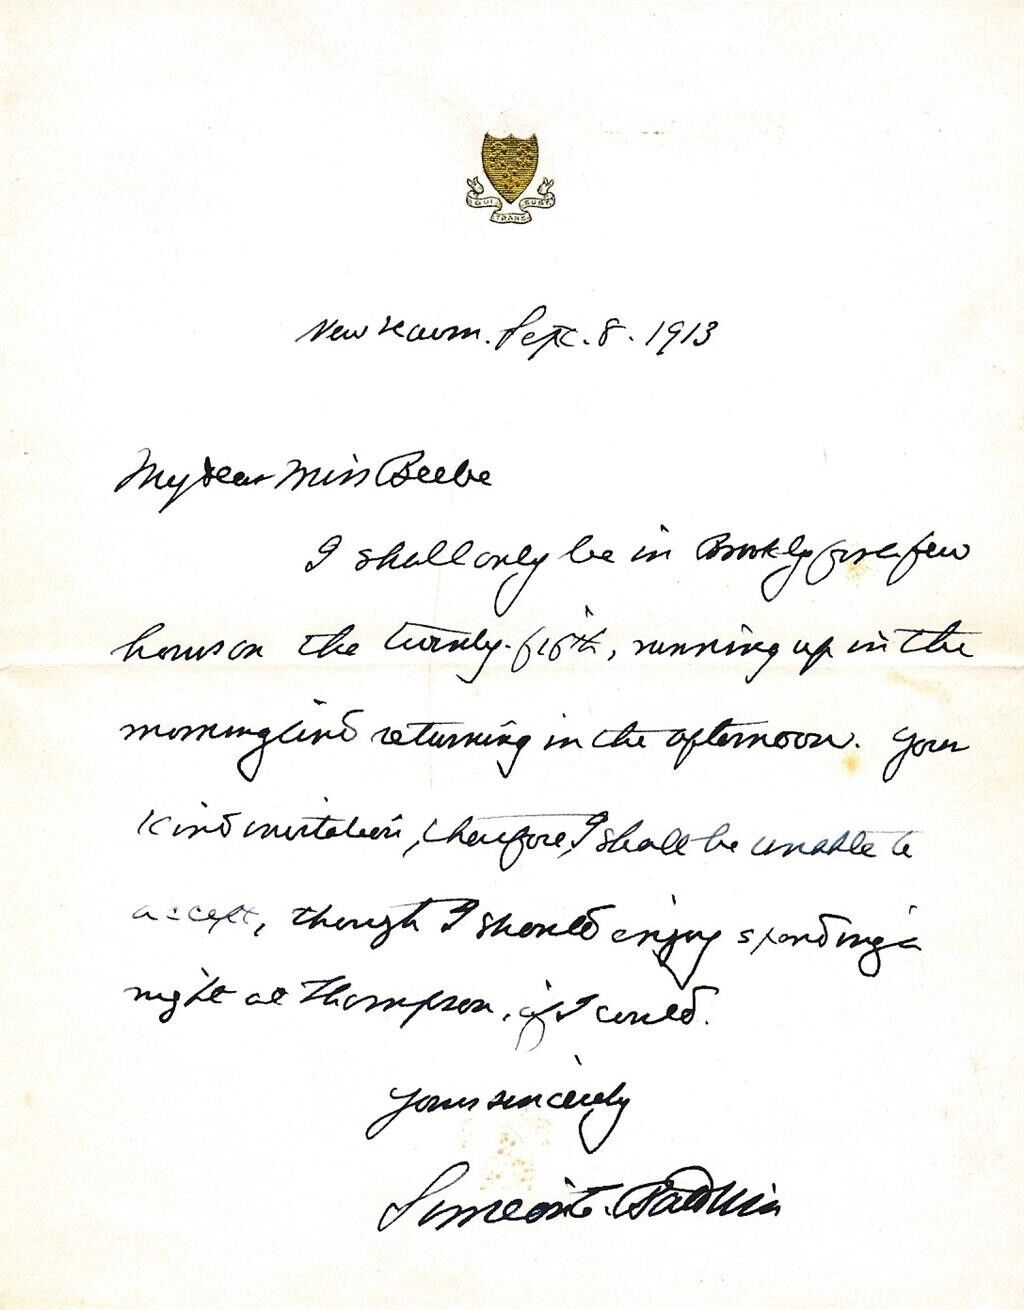 QUI TRANS. SUST.
New Haven. Sept. 8. 1913
My dear Miss Beebe
I shall only be in Brooklyn for a few
hours on the twenty-fifth, running up in the
morning and returning in the afternoon. Your
kind invitation, therefore, I shall be unable to
accept, though I should enjoy spending a
night at Thompson, if I could.
Yours sincerely
Simeon E. Baldwin